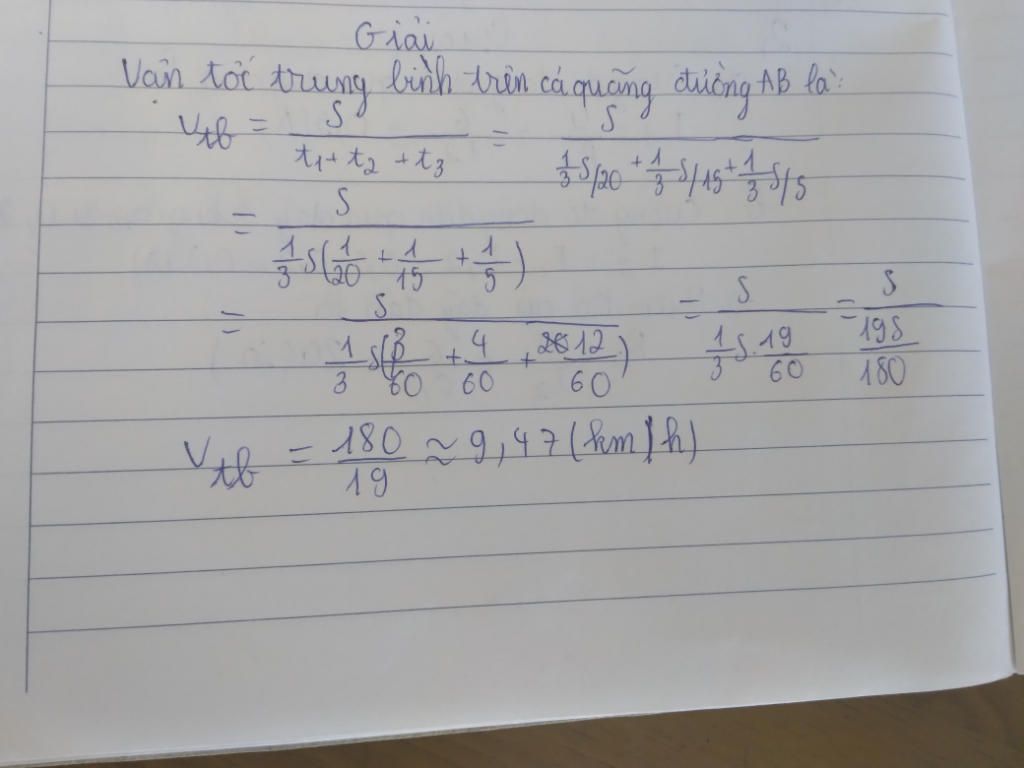 Giải
Vận tốc trung bình trên cả quãng đường AB là:
v_tb = S / (t₁ + t₂ + t₃) = S / (1/3 S/20 + 1/3 S/15 + 1/3 S/5)
= S / (1/3 S(1/20 + 1/15 + 1/5))
= S / (1/3 S(3/60 + 4/60 + 12/60)) = S / (1/3 S · 19/60) = S / (19S/180)
v_tb = 180/19 ≈ 9,47 (km/h)